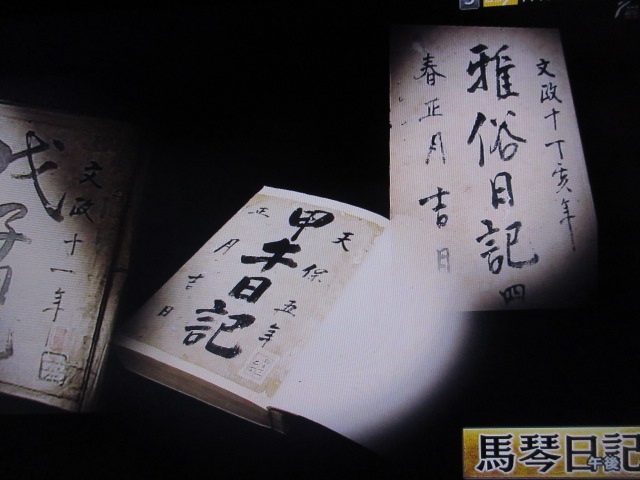 文政十丁亥年
雅俗日記
四
春正月
吉日
天保五年
甲午日記
正月吉日
文政十一年
戊子
馬琴日記
午後